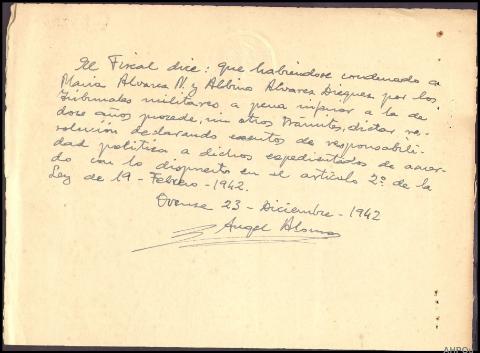 El Fiscal dice: que habiéndose condenado a
Maria Alvarez N. y Albino Alvarez Dieguez por los
Tribunales militares a pena inferior a la de
doce años procede, sin otros trámites, dictar re-
solución declarando exentos de responsabili-
dad politica a dichos expedientados de acuer-
do con lo dispuesto en el artículo 2º de la
Ley de 19 - Febrero - 1942.
Orense 23 - Diciembre - 1942
Angel Alonso
AHPOu